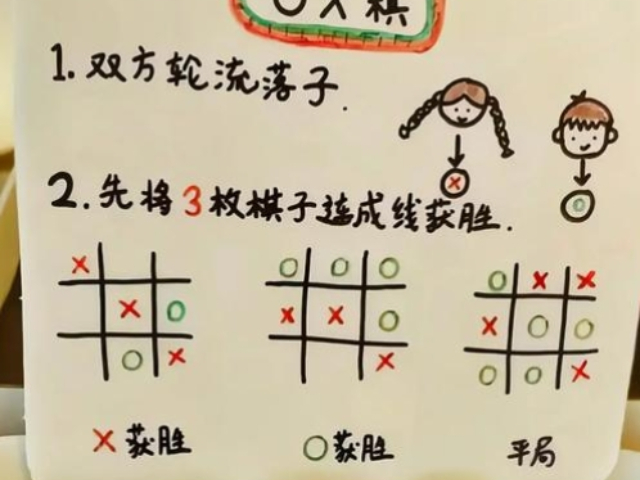 OX棋
1. 双方轮流落子.
2. 先将3枚棋子连成线获胜.
X O
X
X O
O X
O O O
X X O
X
O X X
X O O
O O X
X获胜
O获胜
平局